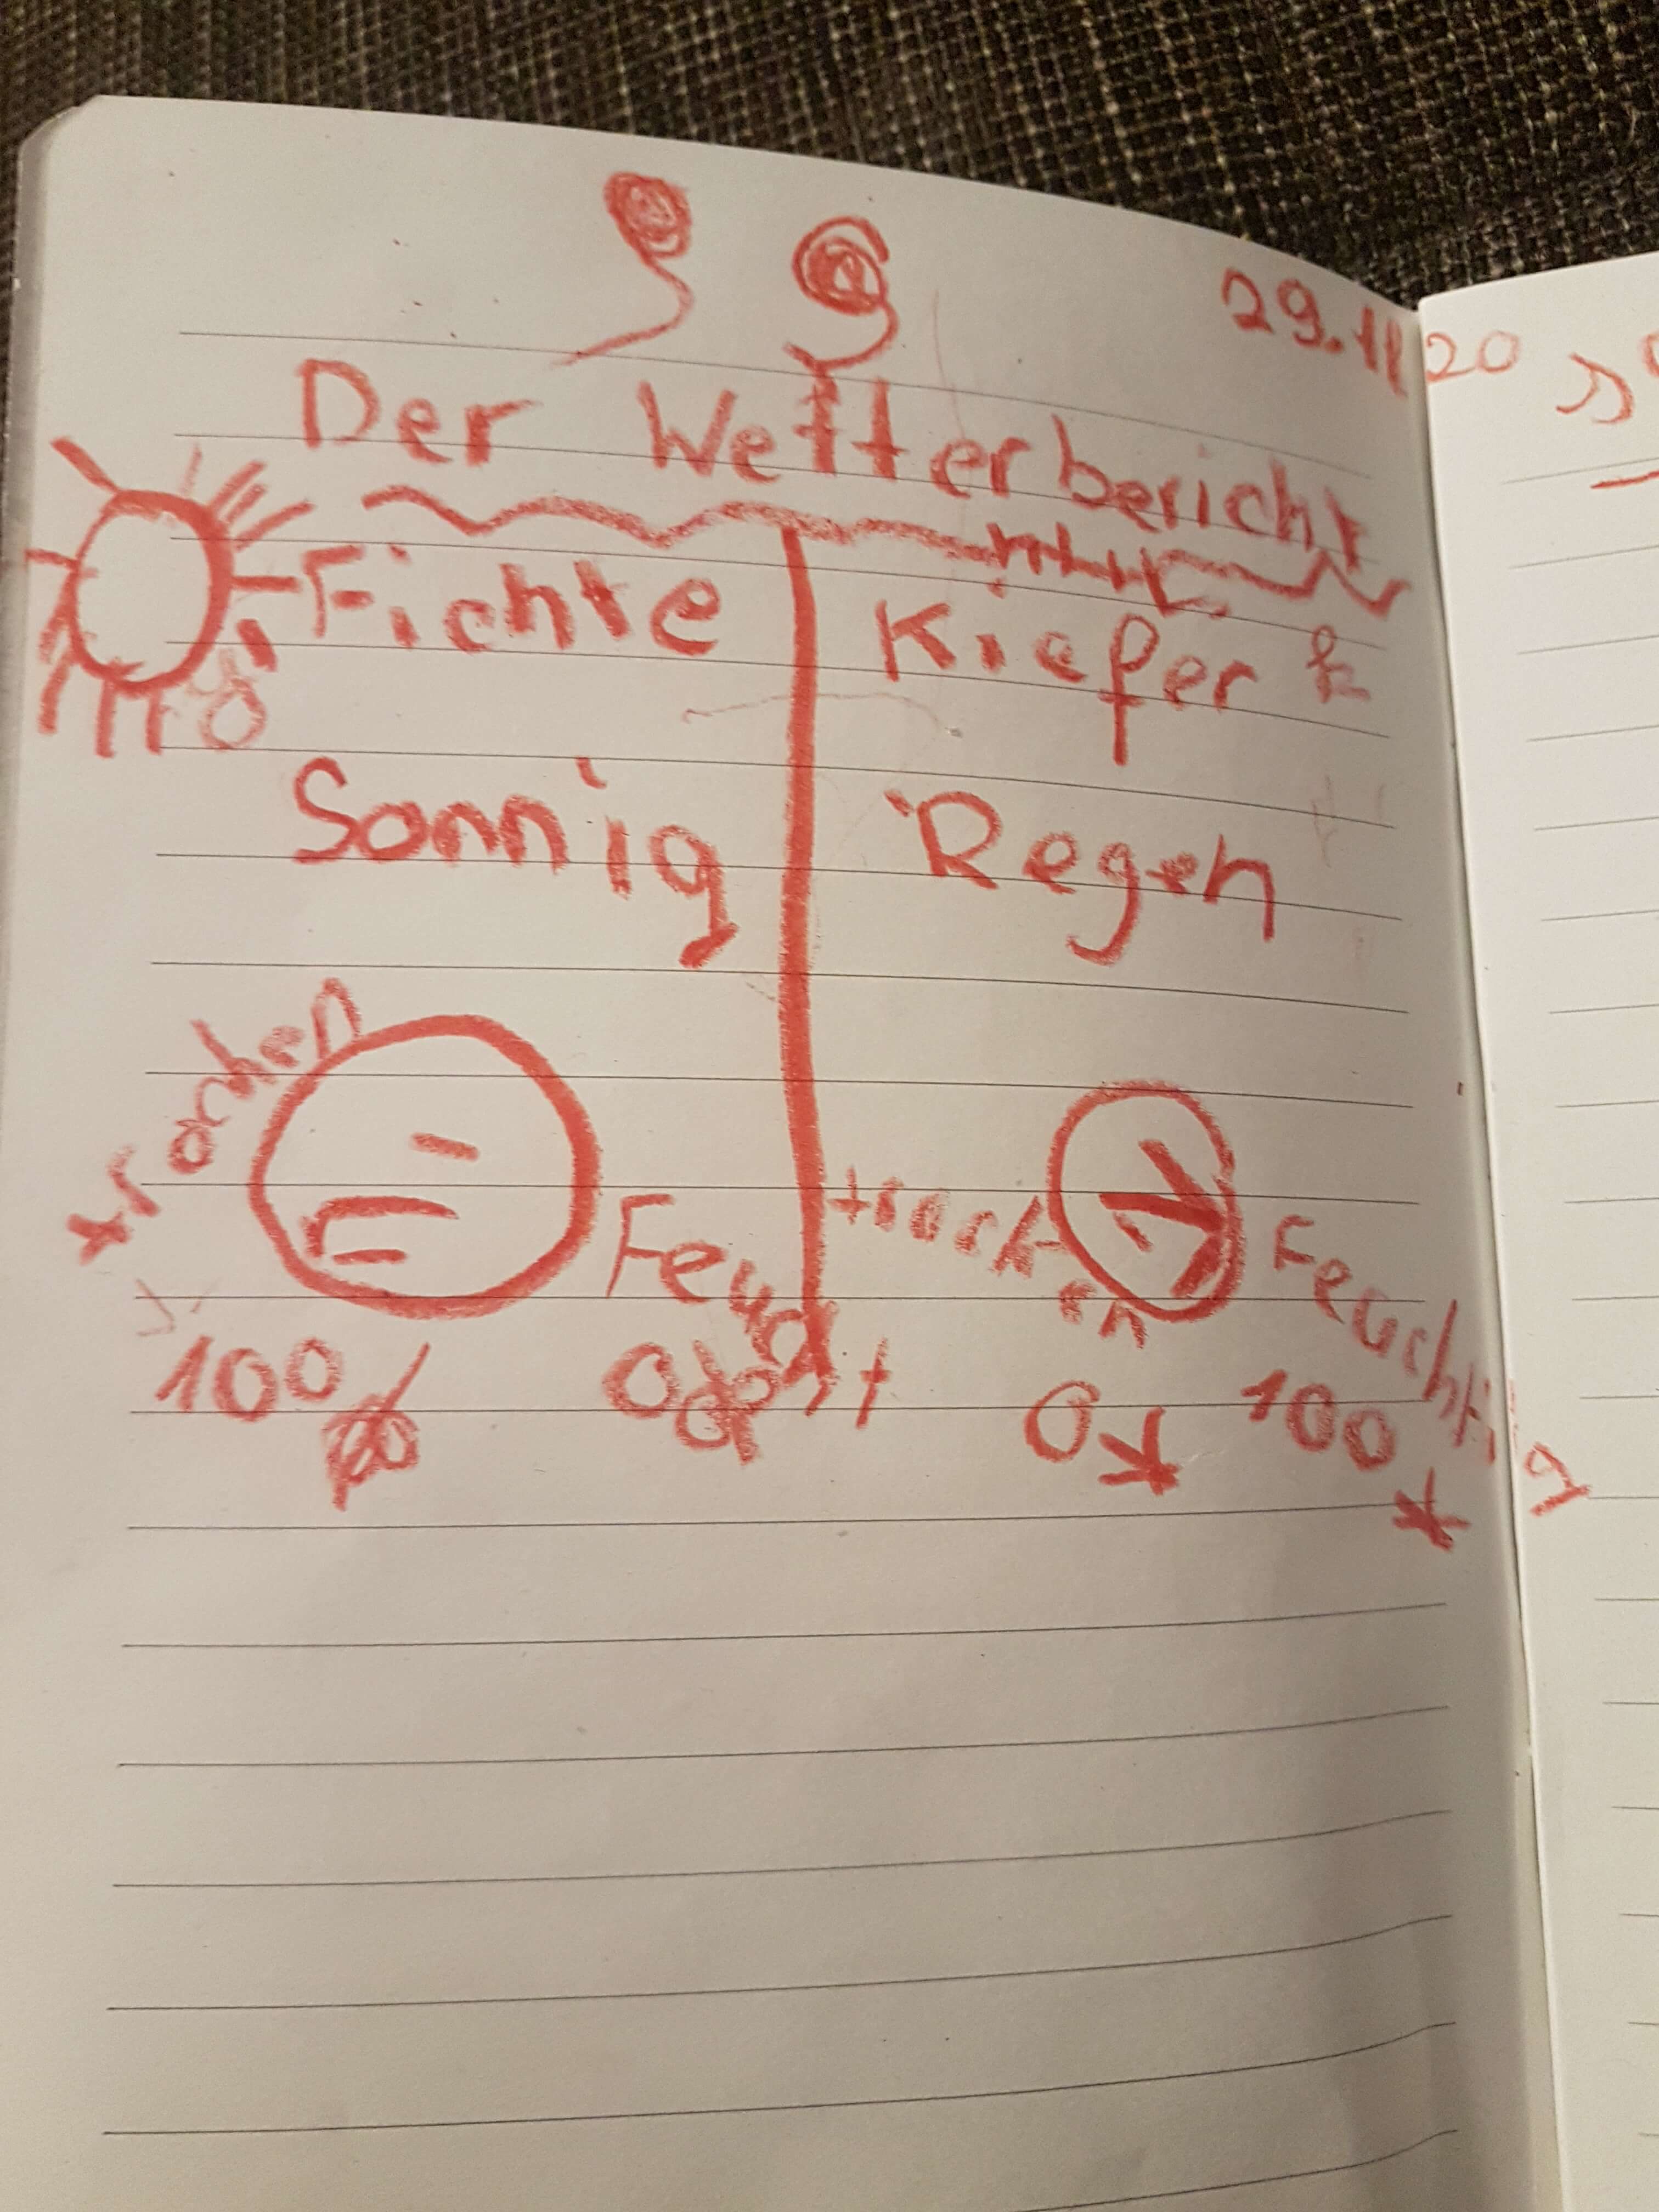 29.11.20
Der Wetterbericht
Fichte Kiefer
Sonnig Regen
Feucht Feuchtig
100 0 0 100